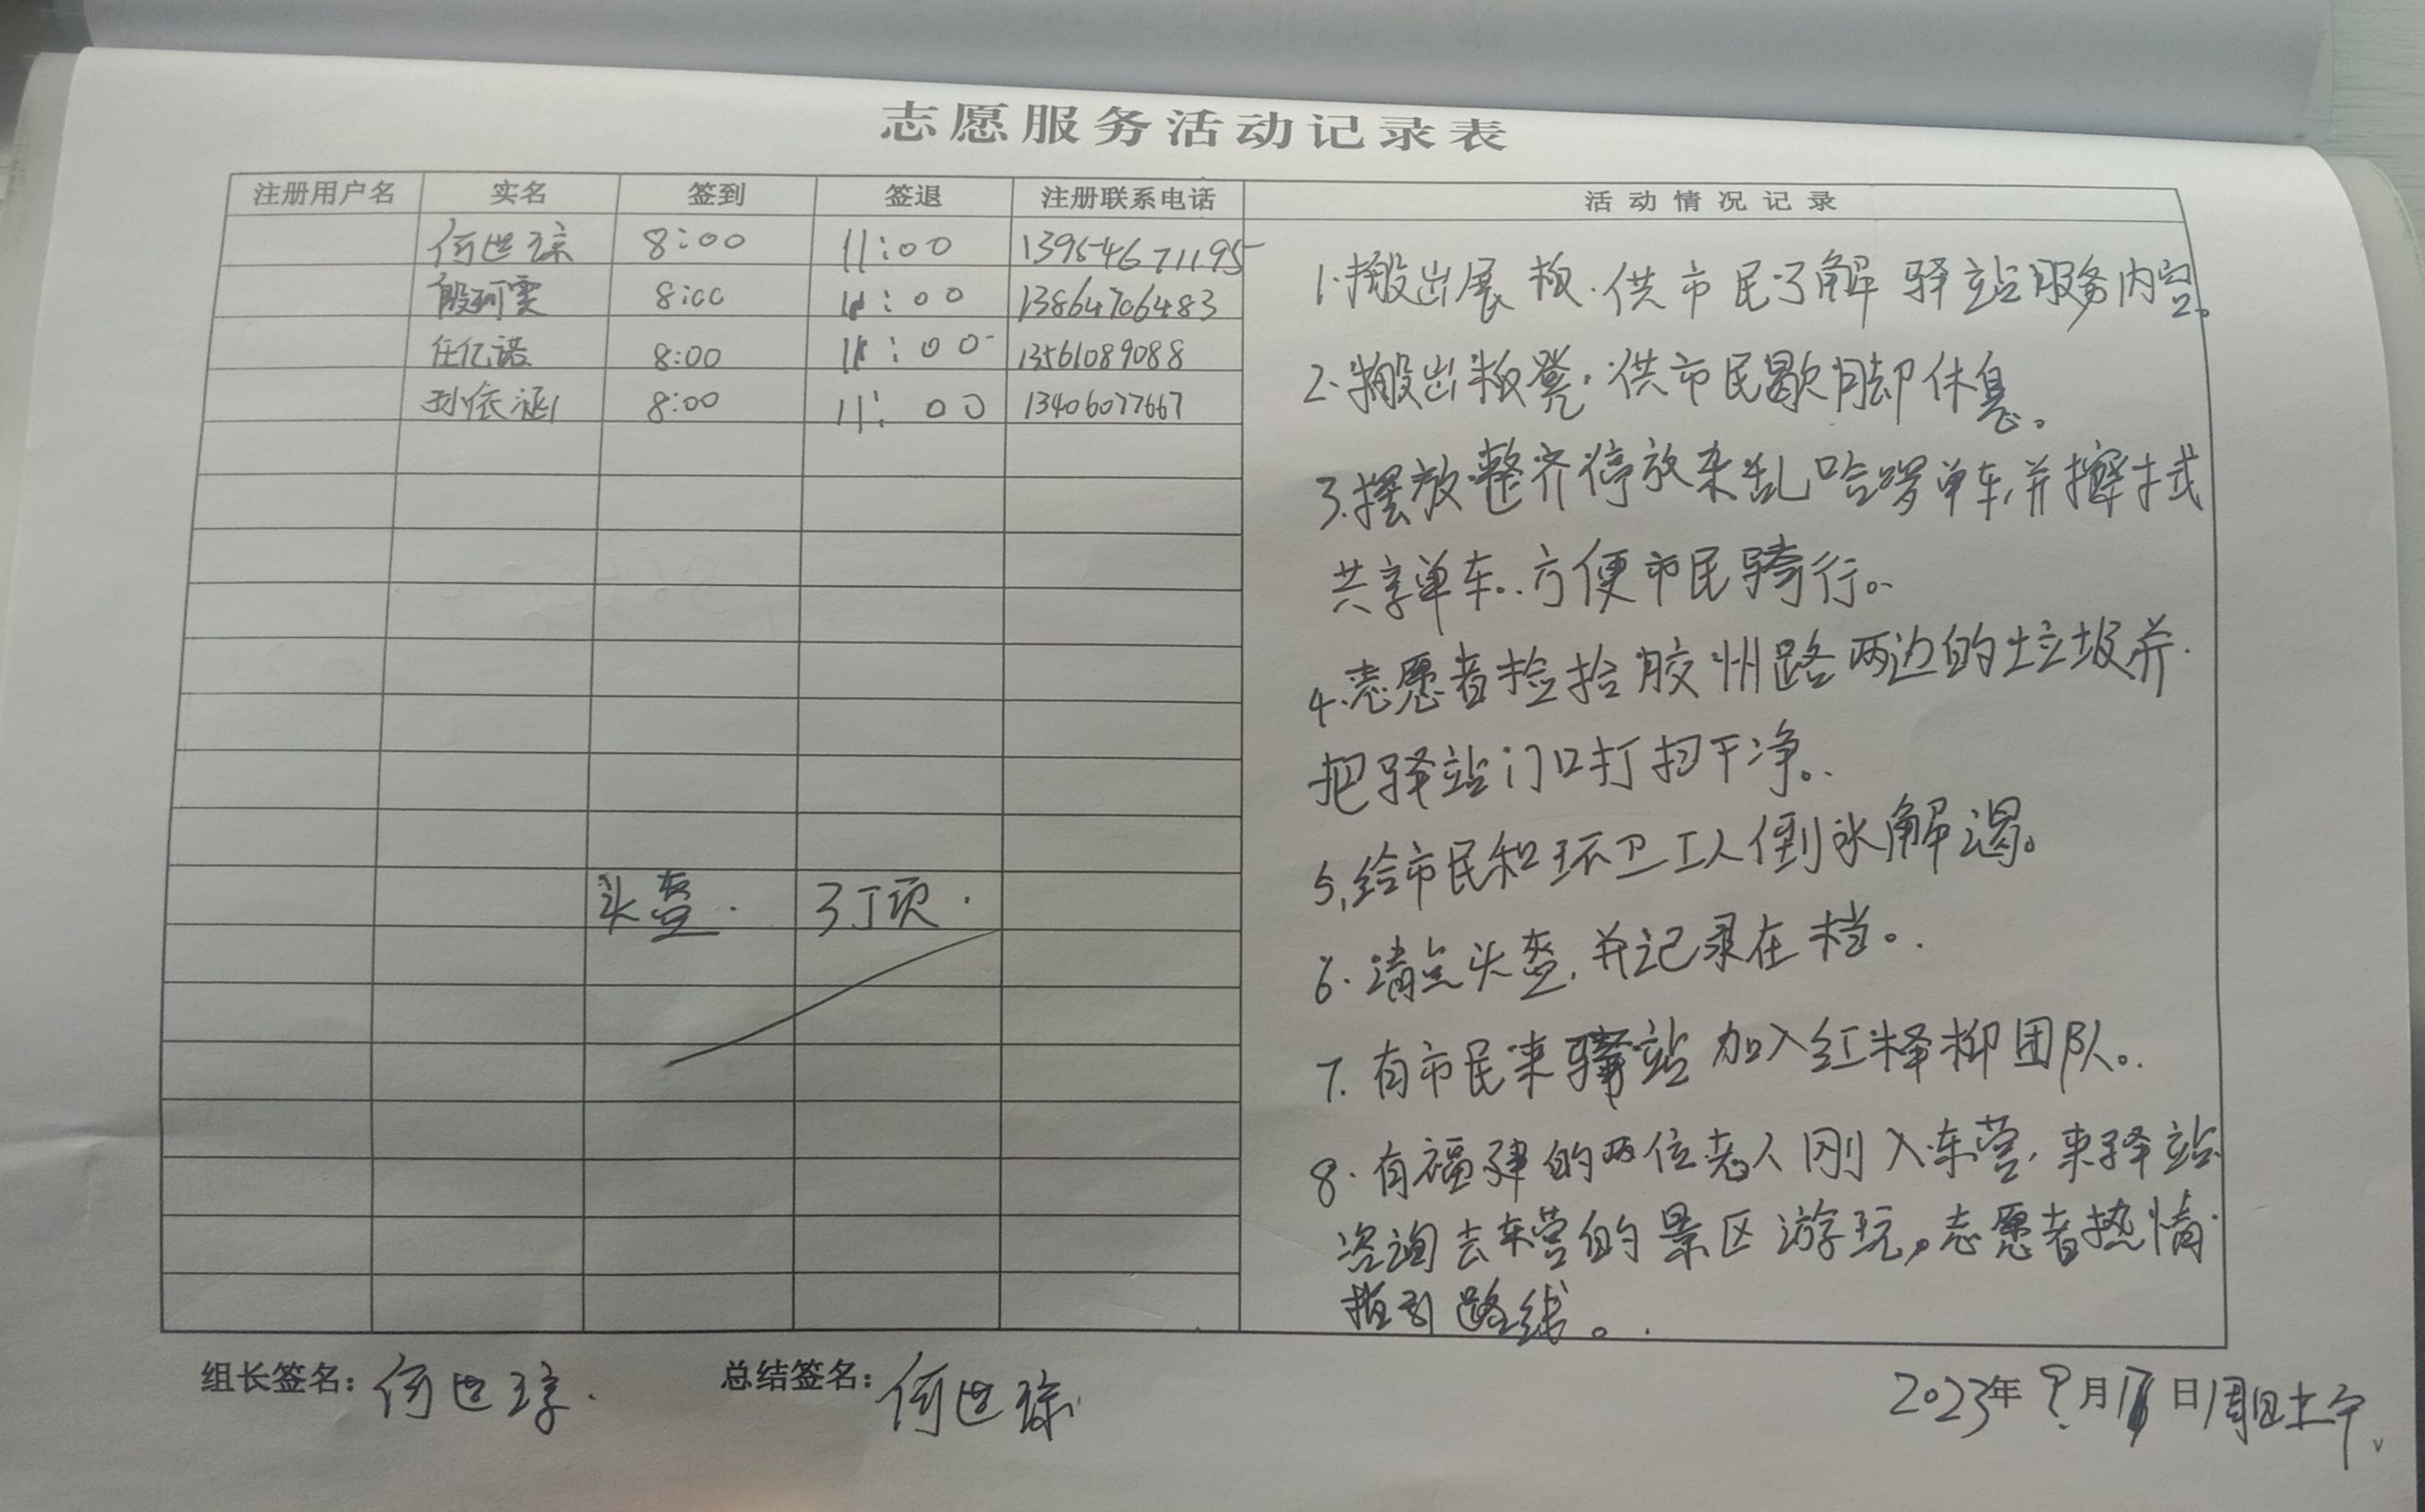 志愿服务活动记录表
注册用户名 实名 签到 签退 注册联系电话 活动情况记录
何世琼 8:00 11:00 13954671195
殷珂雯 8:00 11:00 13864706483
任亿诺 8:00 11:00 13561089088
孙依涵 8:00 11:00 13406077667
头盔. 3顶.
1.搬出展板.供市民了解驿站服务内容。
2.搬出板凳.供市民歇脚休息。
3.摆放整齐停放杂乱哈啰单车,并擦拭
共享单车.方便市民骑行。
4.志愿者捡拾胶州路两边的垃圾并
把驿站门口打扫干净。
5.给市民和环卫工人倒水解渴。
6.清点头盔,并记录在档。
7.有市民来驿站加入红柽柳团队。
8.有福建的两位老人刚入东营,来驿站
咨询去东营的景区游玩,志愿者热情
指引路线。
组长签名:何世琼. 总结签名:何世琼
2023年 月 日周日上午